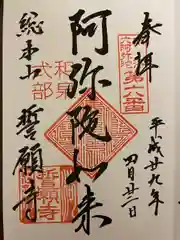 奉拝
平成廿九年
四月廿二日
阿弥陀如来
和泉
式部
総本山
誓願寺
誓願寺